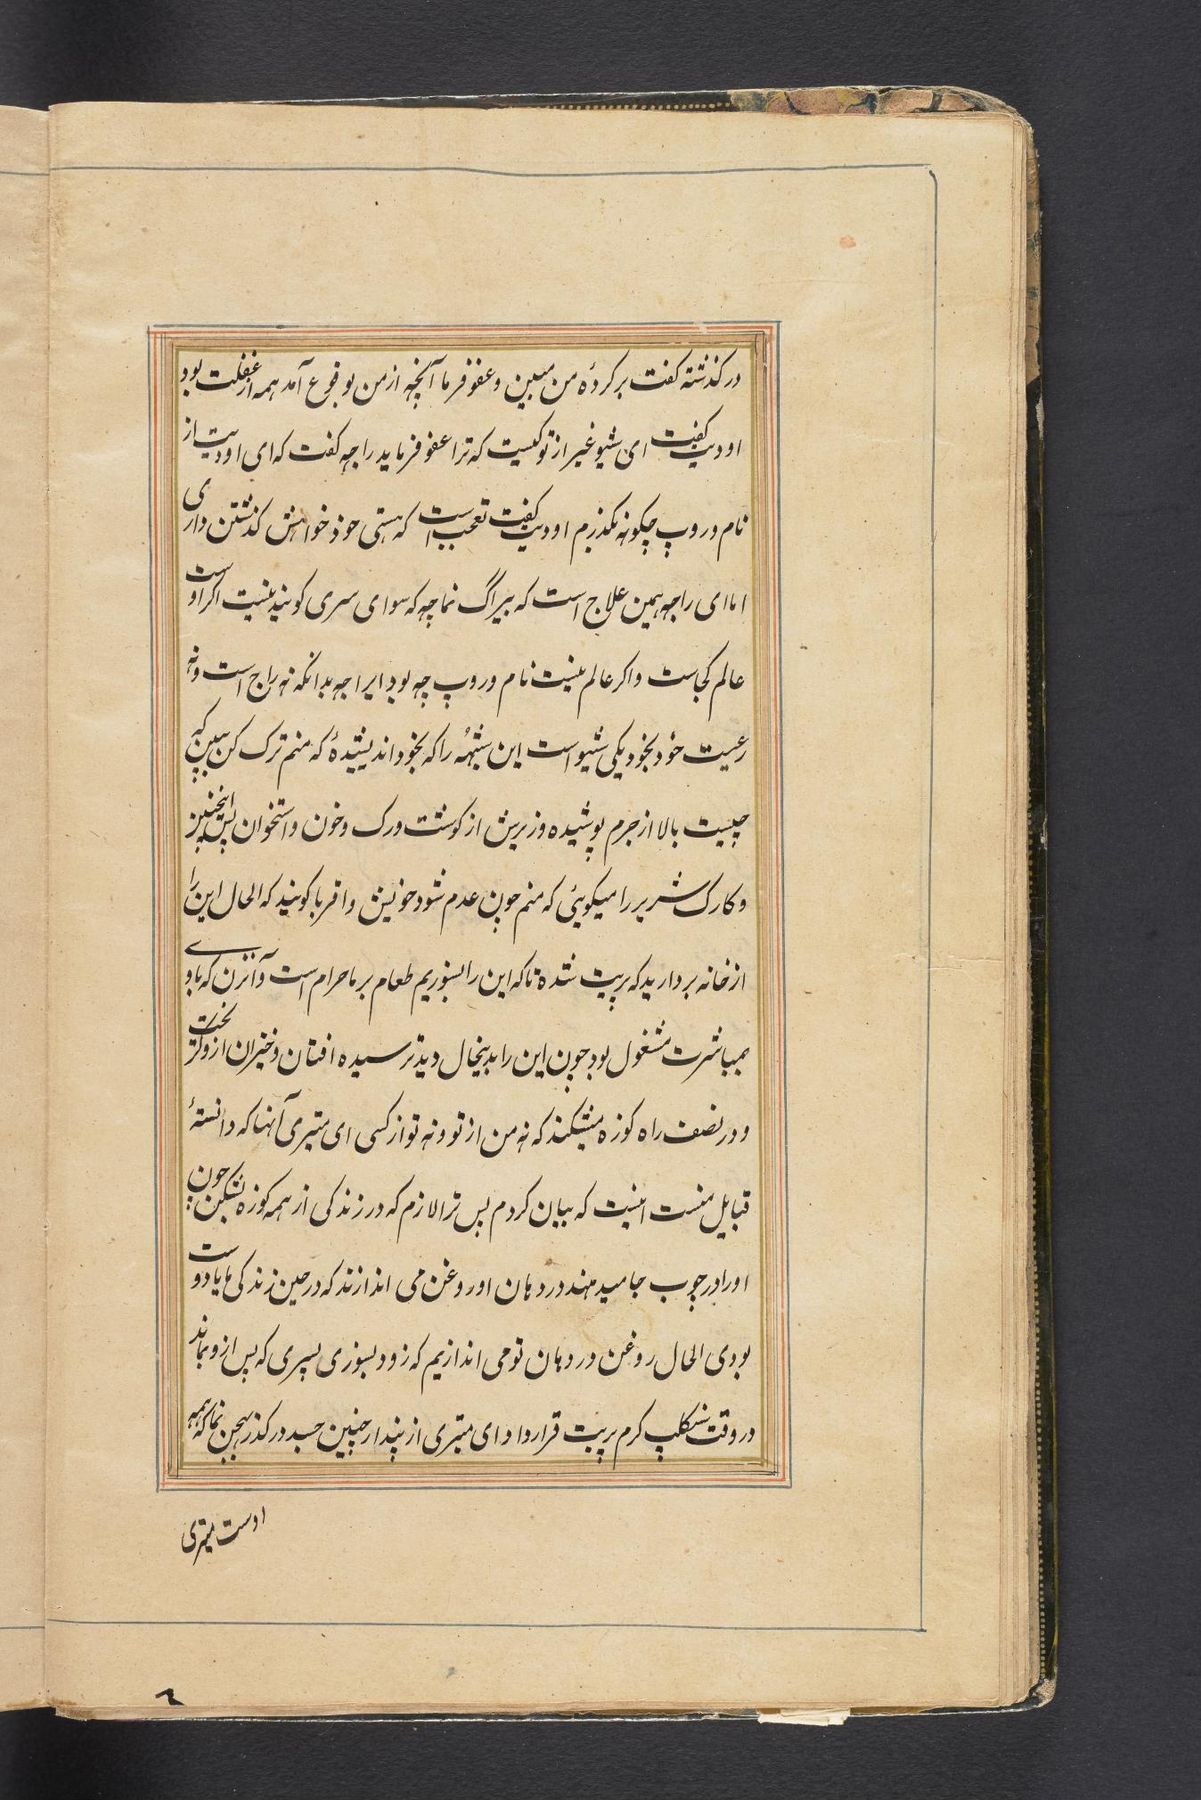 درکذشته کفت برکردهٔ من مبین و عفو فرما آنچه از من بوقوع آمد همه از غفلت بود
اودیت کفت ای شیو غیر از تو کیست که ترا عفو فرماید راجه کفت که ای اودیت از
نام و روپ چکونه بکذرم اودیت کفت تعجب است که هستی خود خواهش کذشتن داری
اما ای راجه همین علاج است که بیراگ نما چه که سوای سری کوبند نیست اکر اوست
عالم کجاست و اکر عالم نیست نام و روپ چه بود ایراجه بدانکه نه راج است و نه
رعیت خود بخود یکی شیو است این شبهه را که بخود اندیشیدهٔ که منم ترک کن ببین که
چیست بالا از جرم پوشیده و زیرش از کوشت و رک و خون و استخوان پس اینچنین
و کارک شریر را میکویئی که منم چون عدم شود خویش و اقربا کویند که الحال این را
از خانه بردارید که پریت شده تا که این را بسوزیم طعام بر ما حرام است و آنزن که با وی
بمباشرت مشغول بود چون این را بدینحال دید ترسیده افتان و خیزان از و کریخت
و در نصف راه کوزه میشکند که نه من از تو و نه تو از کسی ای متیری آنها که دانستهٔ
قبایل منست اینست که بیان کردم پس ترا لازم که در زندکی از همه کوزه بشکن چون
اورا در چوب جا میدهند در دهان او روغن می اندازند که در حین زندکی ما یا دوست
بودی الحال روغن در دهان تو می اندازیم که زود بسوزی پسری که پس از و بماند
در وقت سنکلپ کرم پریت قرار داد ای متیری از پندار چنین جسد درکذر بهجن نما که همه
اوست متیری